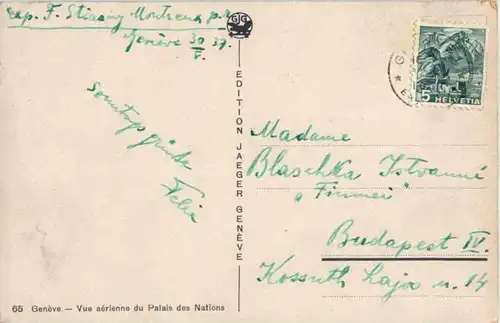 exp. F. Stiasny Montreux p.r.
Genève 30/V. 37.
Sonntagsgrüsse
Felix
GG
EDITION JAEGER GENÈVE
5 HELVETIA
Madame
Blaschka Istvanné
"Firmei"
Budapest IV.
Kossuth Lajos u. 14
65 Genève — Vue aérienne du Palais des Nations